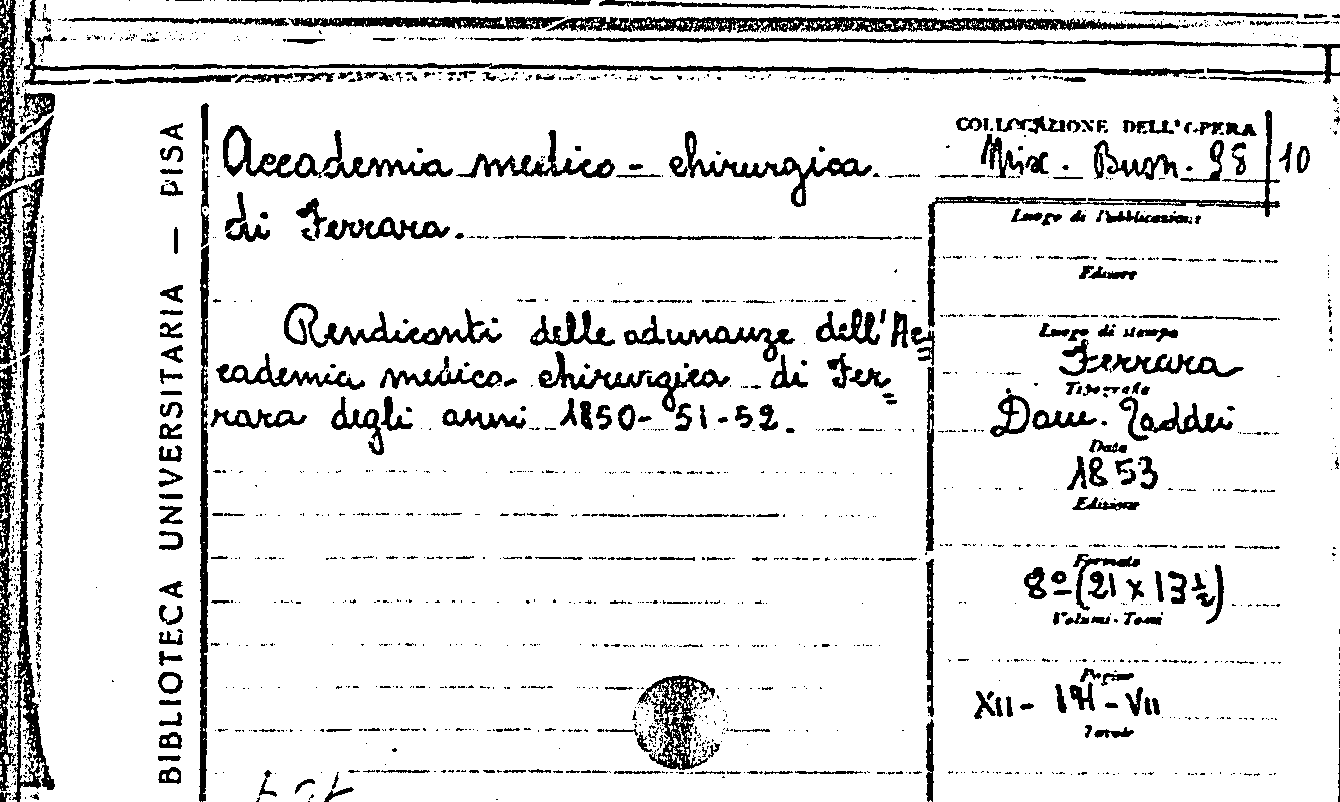 BIBLIOTECA UNIVERSITARIA — PISA
Accademia medico - chirurgica
di Ferrara.
Rendiconti delle adunanze dell'Ac=
cademia medico-chirurgica di Fer=
rara degli anni 1850-51-52.
COLLOCAZIONE DELL'OPERA
Misc. Busn. 98 | 10
Luogo di Pubblicazione
Editore
Luogo di stampa
Ferrara
Tipografia
Dom. Taddei
Data
1853
Edizione
Formato
8º (21 x 13 ½)
Volumi-Tomi
Pagine
XII - 191 - VII
Tavole